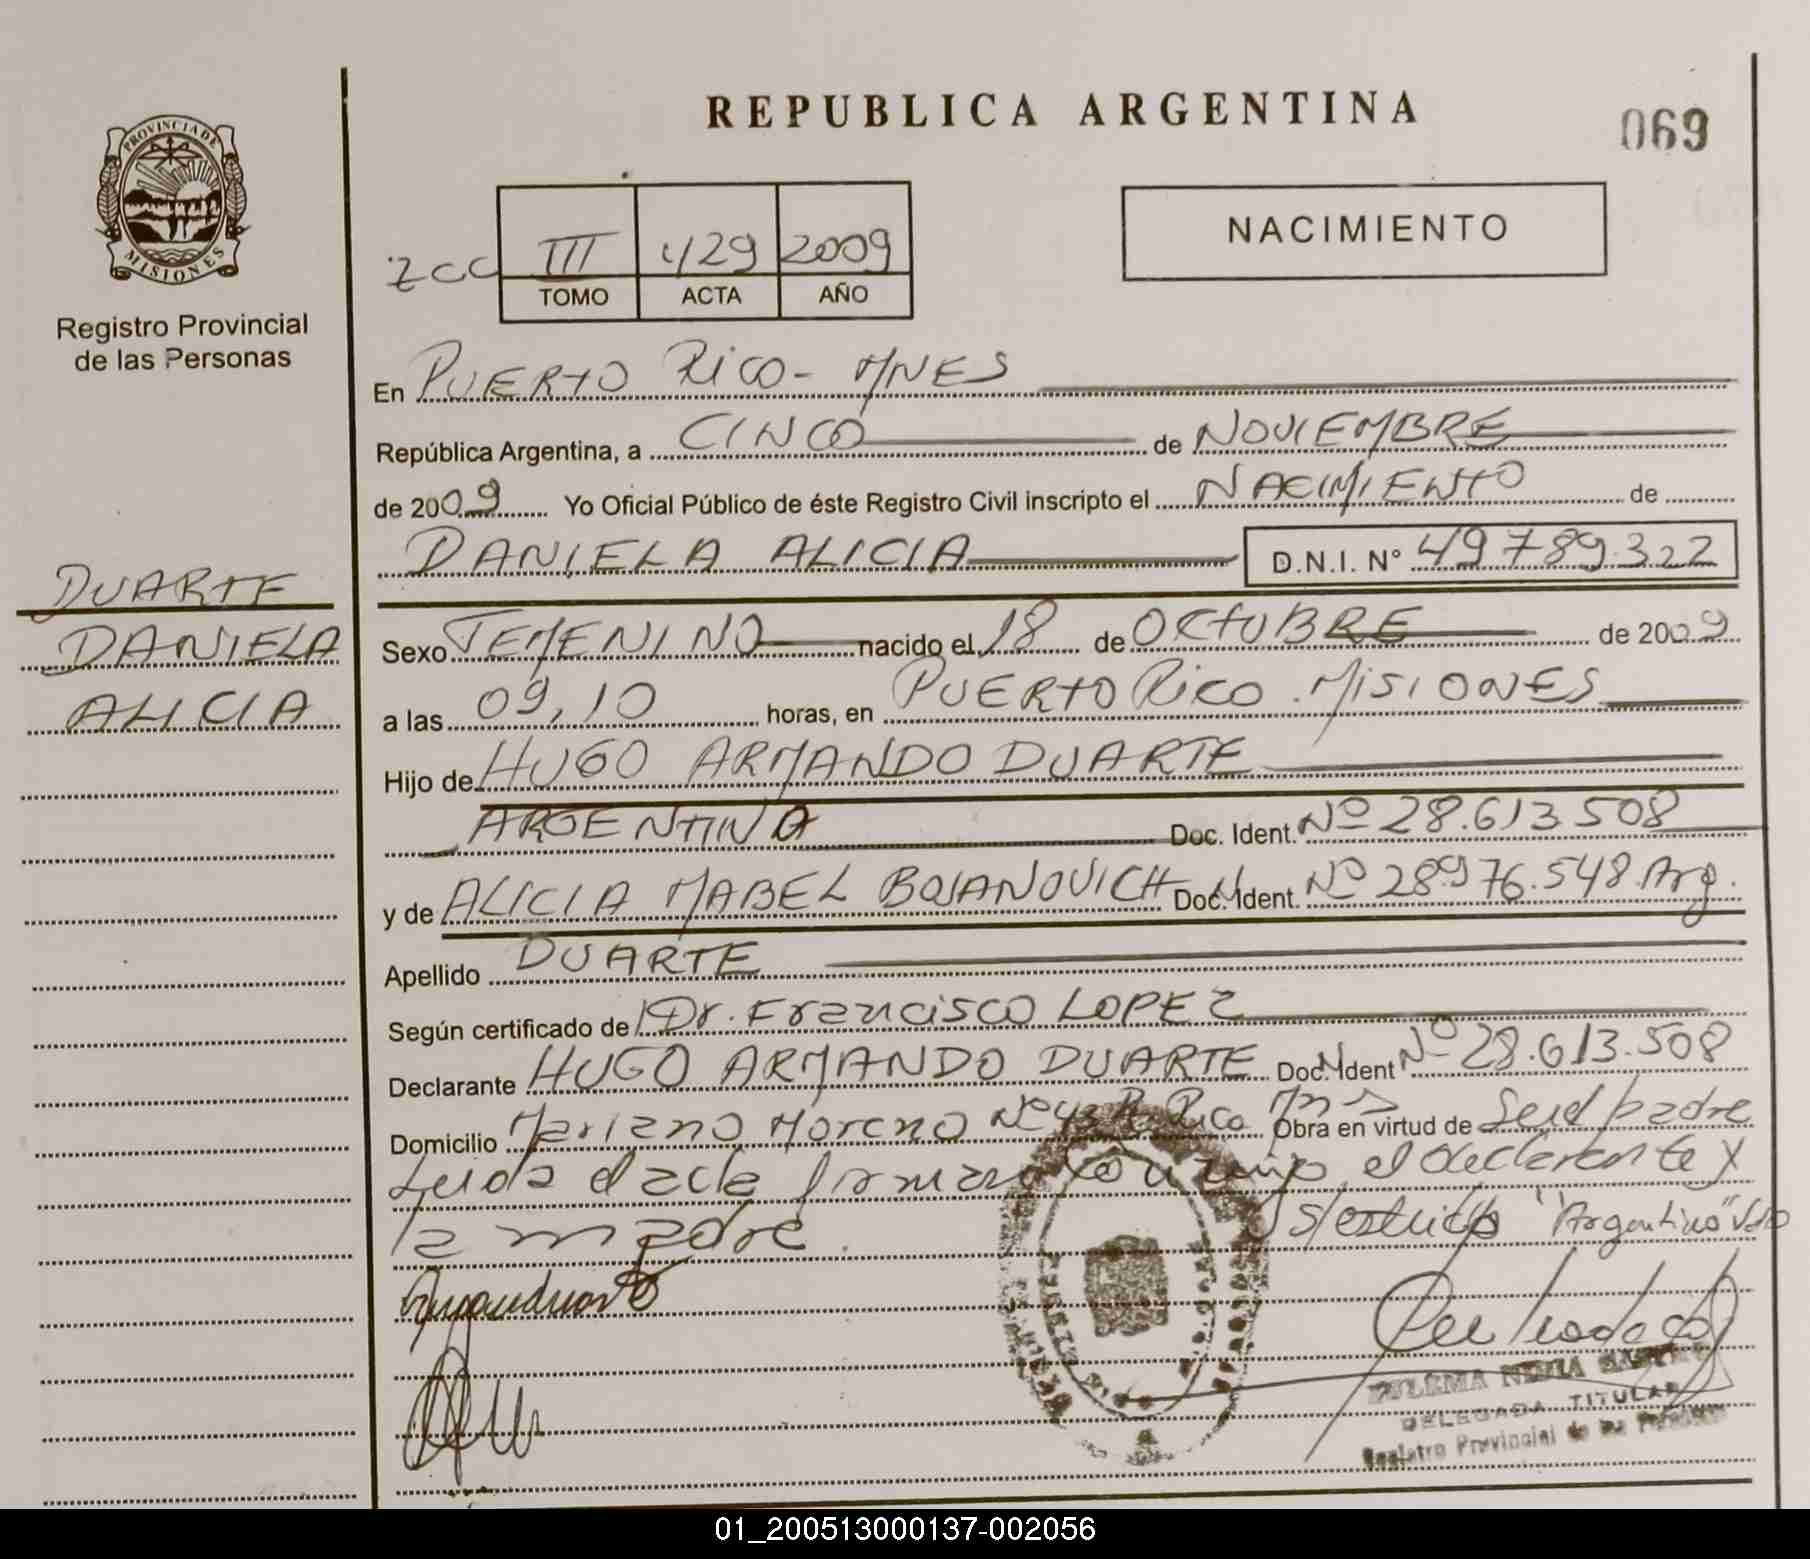 REPUBLICA ARGENTINA
069
PROVINCIA DE
MISIONES
Registro Provincial
de las Personas
III 429 2009
TOMO ACTA AÑO
NACIMIENTO
En PUERTO RICO - MNES
República Argentina, a CINCO de NOVIEMBRE
de 2009 Yo Oficial Público de éste Registro Civil inscripto el NACIMIENTO de
DANIELA ALICIA D.N.I. N° 49789.322
DUARTE
DANIELA
ALICIA
Sexo FEMENINO nacido el 18 de OCTUBRE de 2009
a las 09,10 horas, en PUERTO RICO. MISIONES
Hijo de HUGO ARMANDO DUARTE
ARGENTINA Doc. Ident. Nº 28.613.508
y de ALICIA MABEL BOJANOVICH Doc. Ident. Nº 28.976.548. Arg.
Apellido DUARTE
Según certificado de Dr. Francisco LOPEZ
Declarante HUGO ARMANDO DUARTE Doc. Ident Nº 28.613.508
Domicilio Mariano Moreno Nº 43 P. Rico Mns Obra en virtud de Ser el padre
Leida el acta firman conmigo, el declarante y
la madre. "Argentino" Vale
DELEGADA TITULAR
Registro Provincial de las Personas
01_200513000137-002056